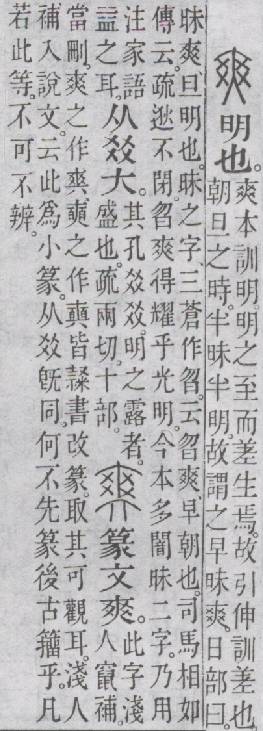 爽 明也。
爽本訓明。明之至而差生焉。故引伸訓差也。
朝旦之時。半昧半明。故謂之早昧爽。日部曰。
昧爽。旦明也。昧之字、三蒼作曶。云曶爽、早朝也。司馬相如
傳云。疏逖不閉。曶爽得耀乎光明。今本多闇昧二字。乃用
注家語
益之耳。
从㸚大。
其孔㸚㸚。明之露者。
盛也。疏兩切。十部。
爽 篆文爽。
此字淺
人竄補。
當刪。爽之作 之作 皆隸書改篆。取其可觀耳。淺人
補入說文。云此爲小篆。从㸚旣同。何不先篆後古籒乎。凡
若此等。不可不辨。